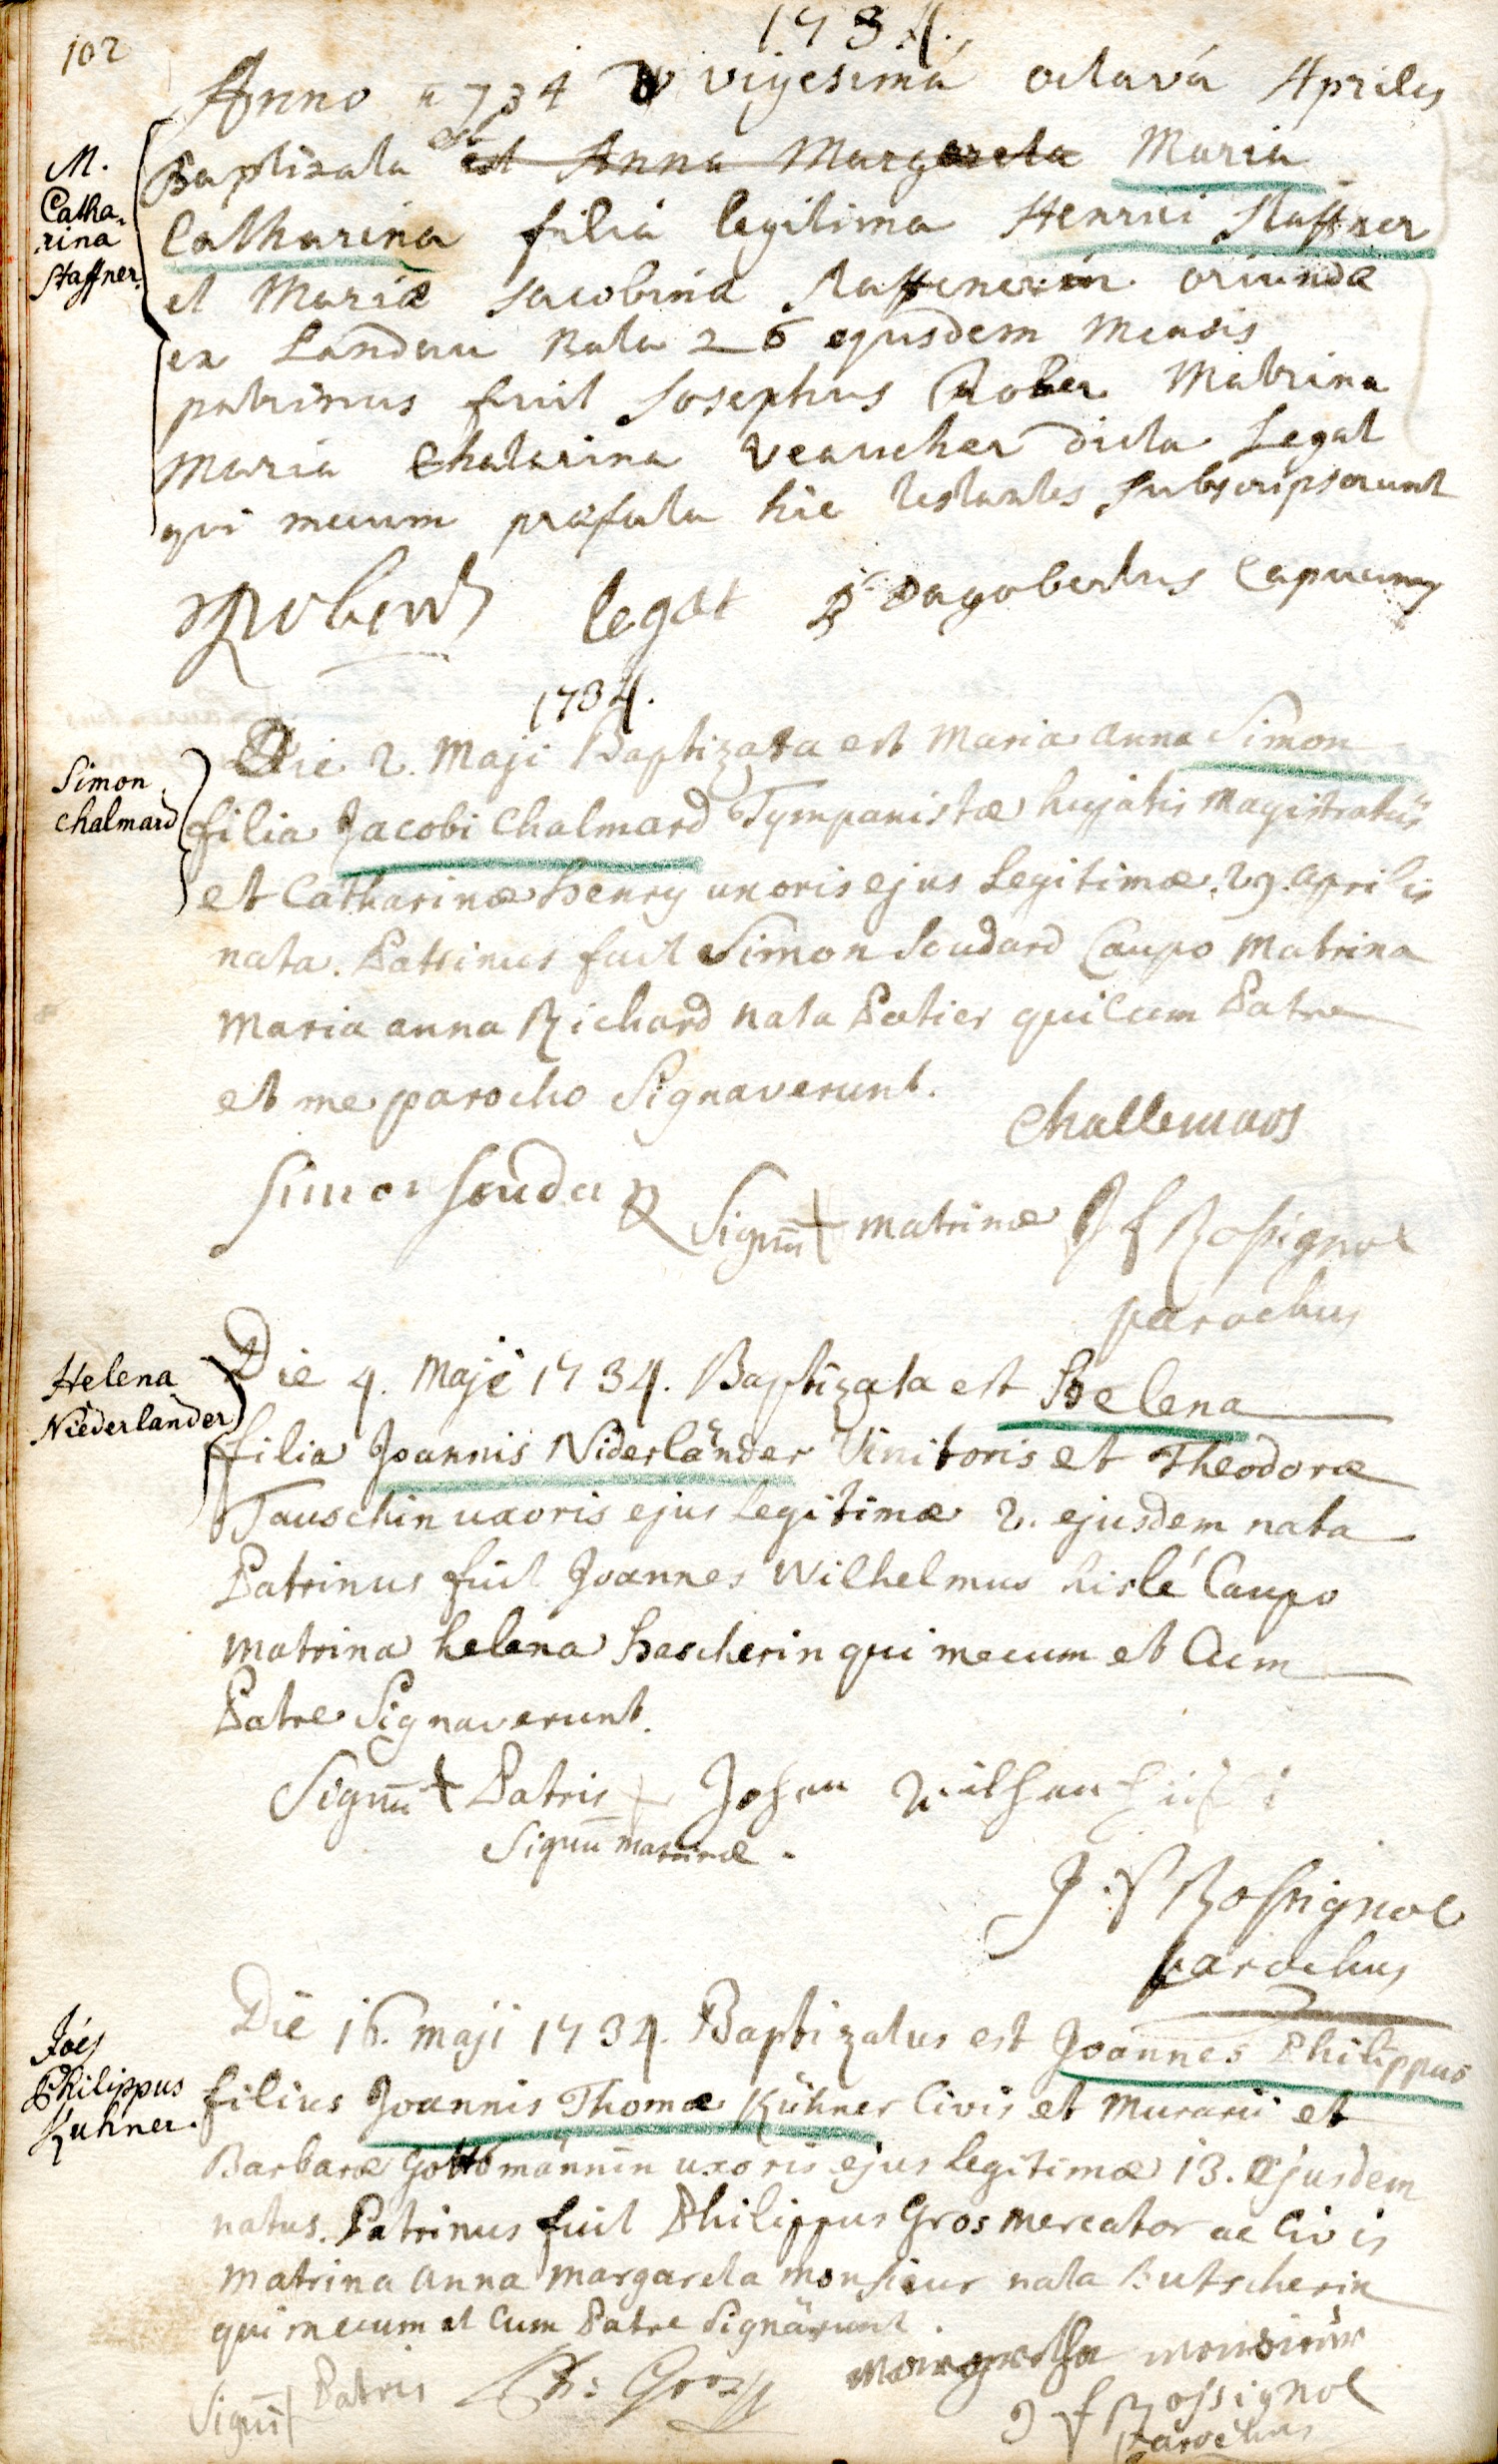 102
1734.
Anno 1734 vigesimá octavá Aprilis
M. Catha-
rina
Staffner.
Baptizata est est Anna Margareta Maria
Catharina filia legitima Henrici Staffner
et Mariæ Jacobina Staffenerin oriunda
ex Landau Nata 26 ejusdem mensis
patrinus fuit Josephus Rober Matrina
Maria Chatarina Veaucher dicta Legat
qui mecum præfata hic testantes subscripserunt
legat Dagobertus Capucinus
1734.
Simon
Chalmard
Die 2. Maji Baptizata est Maria Anna Simon
filia Jacobi Chalmard Tympanistæ hujatis Magistratûs
et Catharinæ henry uxoris ejus Legitimæ. 29. Aprilis
nata. Patrinus fuit Simon Soudard Caupo Matrina
Maria anna Richard nata Patier qui cum Patre
et me parocho Signaverunt.
Challemars
Simon Soudar Signū + matrinæ J f Rossignol
parochus
Helena
Niederlander
Die 4. Maji 1734. Baptizata est Helena
filia Joannis Niderländer Vinitoris et Theodoræ
Tauschin uxoris ejus Legitimæ 2. ejusdem nata
Patrinus fuit Joannes Wilhelmus hislé Caupo
Matrina helena hascherin qui mecum et Cum
Patre Signaverunt.
Signū + Patris + Johan
Signū matrinæ.
J. f Rossignol
parochus
Jões
Philippus
Kuhner.
Die 16. maji 1734. Baptizatus est Joannes Philippus
filius Joannis Thomæ Kühner Civis et Murarii et
Barbaræ Gottmännin uxoris ejus Legitimæ 13. ejusdem
natus. Patrinus fuit Philippus Gros Mercator ac Civis
Matrina Anna Margareta monsieur nata Butscherin
qui mecum et Cum Patre Signârunt.
Signū + Patris Ph: Gros Margretha monsieur
J f Rossignol
parochus